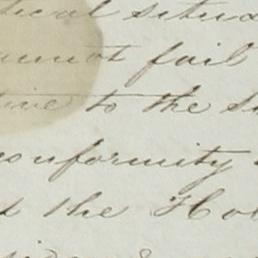 tical situa
annot fail
tive to the S
conformity
the Ho